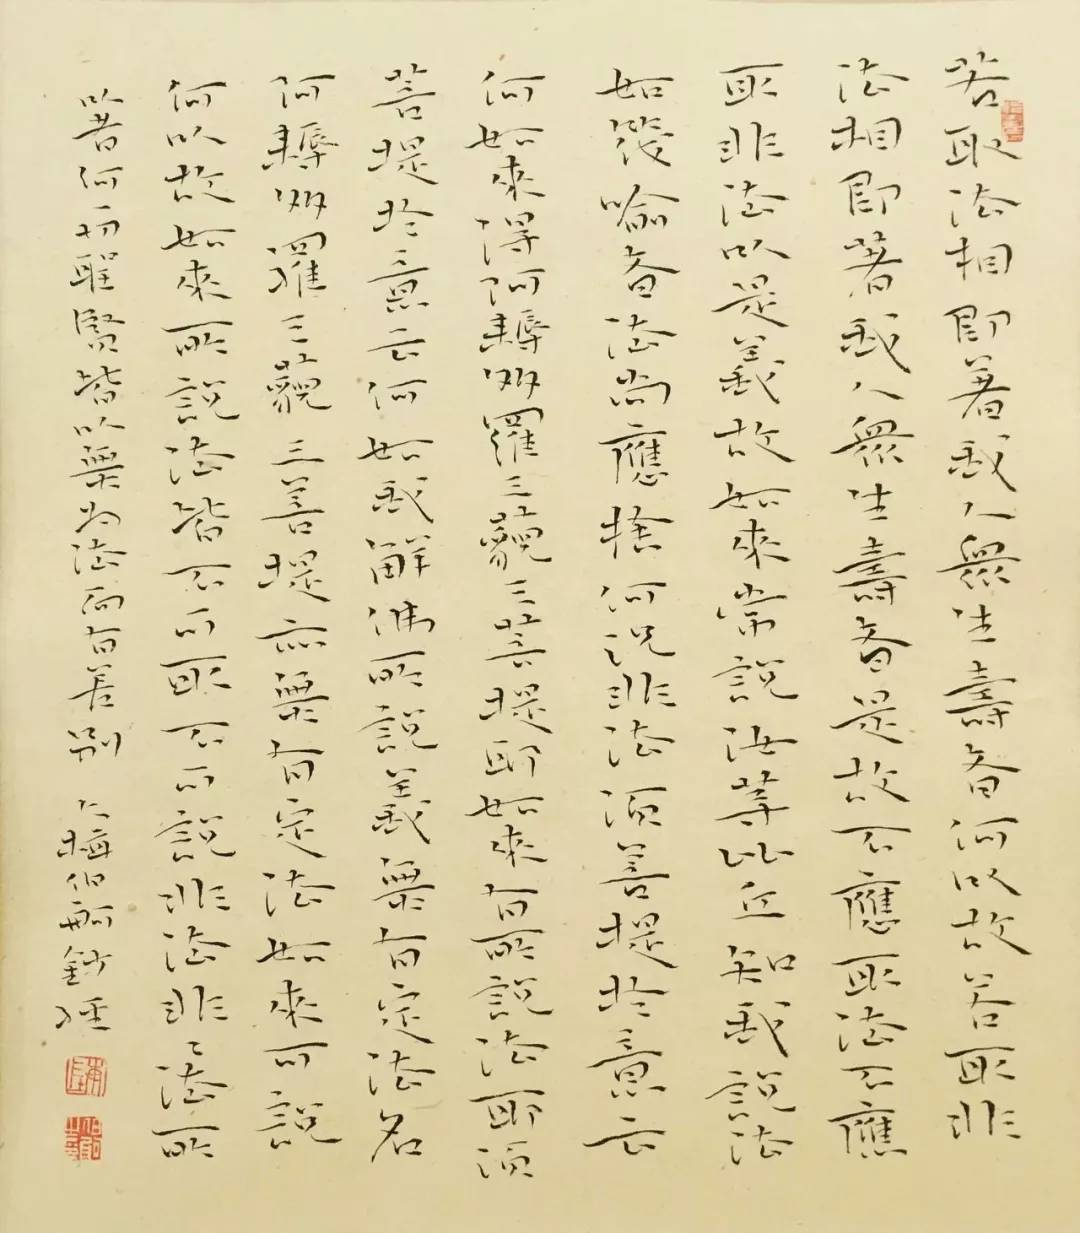 若取法相即著我人眾生壽者何以故若取非
法相即著我人眾生壽者是故不應取法不應
取非法以是義故如來常說汝等比丘知我說法
如筏喻者法尚應捨何況非法須菩提於意云
何如來得阿耨多羅三藐三菩提耶如來有所說法耶須
菩提於意云何如我解佛所說義無有定法名
阿耨多羅三藐三菩提亦無有定法如來可說
何以故如來所說法皆不可取不可說非法非〻法所
以者何一切聖賢皆以無為法而有差別 梅伯舸鈔經